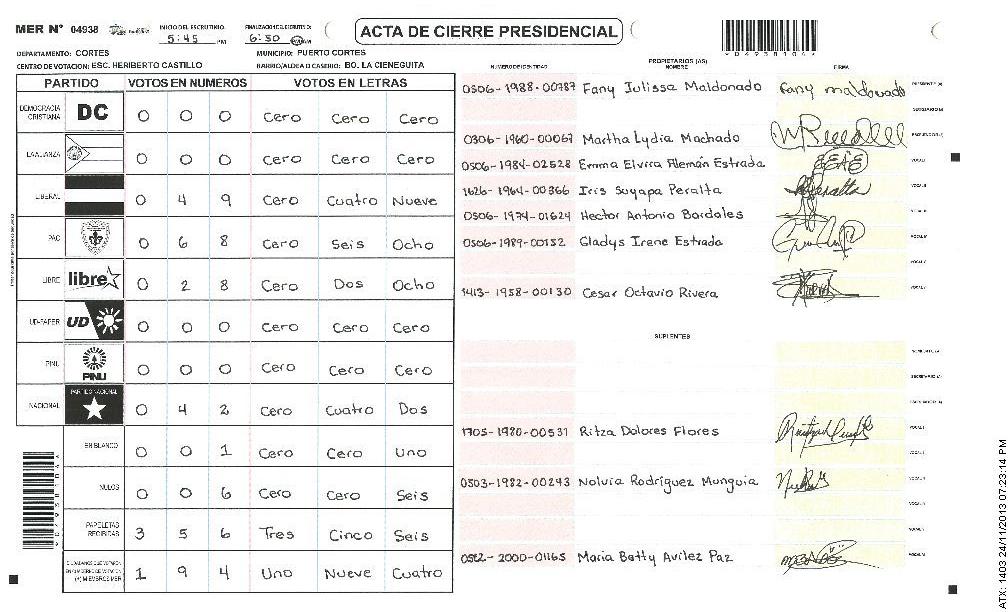 MER N° 04938
INICIO DEL ESCRUTINIO: 5:45 PM
FINALIZACION DEL ESCRUTINIO: 6:50 PM
ACTA DE CIERRE PRESIDENCIAL
DEPARTAMENTO: CORTES
MUNICIPIO: PUERTO CORTES
CENTRO DE VOTACION: ESC. HERIBERTO CASTILLO
BARRIO/ALDEA O CASERIO: BO. LA CIENEGUITA
PARTIDO VOTOS EN NUMEROS VOTOS EN LETRAS
DEMOCRACIA CRISTIANA DC 0 0 0 Cero Cero Cero
LA ALIANZA 0 0 0 Cero Cero Cero
LIBERAL 0 4 9 Cero Cuatro Nueve
PAC 0 6 8 Cero Seis Ocho
LIBRE libre 0 2 8 Cero Dos Ocho
UD-FAPER UD 0 0 0 Cero Cero Cero
PINU PINU 0 0 0 Cero Cero Cero
NACIONAL PARTIDO NACIONAL 0 4 2 Cero Cuatro Dos
EN BLANCO 0 0 1 Cero Cero Uno
NULOS 0 0 6 Cero Cero Seis
PAPELETAS RECIBIDAS 3 5 6 Tres Cinco Seis
CIUDADANOS QUE VOTARON 1 9 4 Uno Nueve Cuatro
(+) MIEMBROS MER
PROPIETARIOS (AS)
NUMERO DE IDENTIDAD NOMBRE FIRMA
0506-1988-00787 Fany Julissa Maldonado fany maldonado
0306-1960-00067 Martha Lydia Machado
0506-1984-02528 Emma Elvira Alemán Estrada EEAE
1626-1964-00366 Iris Suyapa Peralta
0506-1974-01624 Hector Antonio Bardales
0506-1989-00152 Gladys Irene Estrada
1413-1958-00130 Cesar Octavio Rivera
SUPLENTES
1705-1980-00531 Ritza Dolores Flores
0503-1982-00243 Nolvia Rodríguez Munguia
0512-2000-01165 Maria Betty Avilez Paz
ATX: 1403 24/11/2013 07:23:14 PM